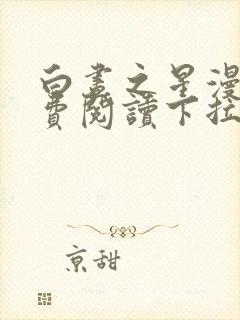 白晝之星漫
費閱讀下拉
京甜